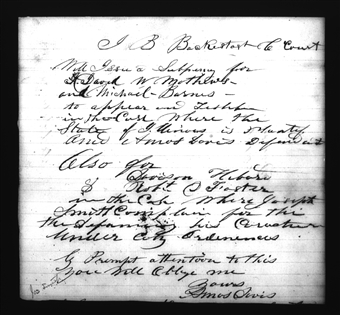 J B Backestost C Court
Will Issue a Subpeny for
David W Mathews
and Michael Barnes –
to appear and Testify
in the Case Where the
State of Illinois is Plantif
And Amos Davis Defendant
Also for
Hibard
& Robt D Foster
in the Case Where Joseph
Smith Complain for the
the Defaming his Caracter
Under City Ordenences
G Prompt attention to this
you Will Oblige me
Yours
Amos Davis